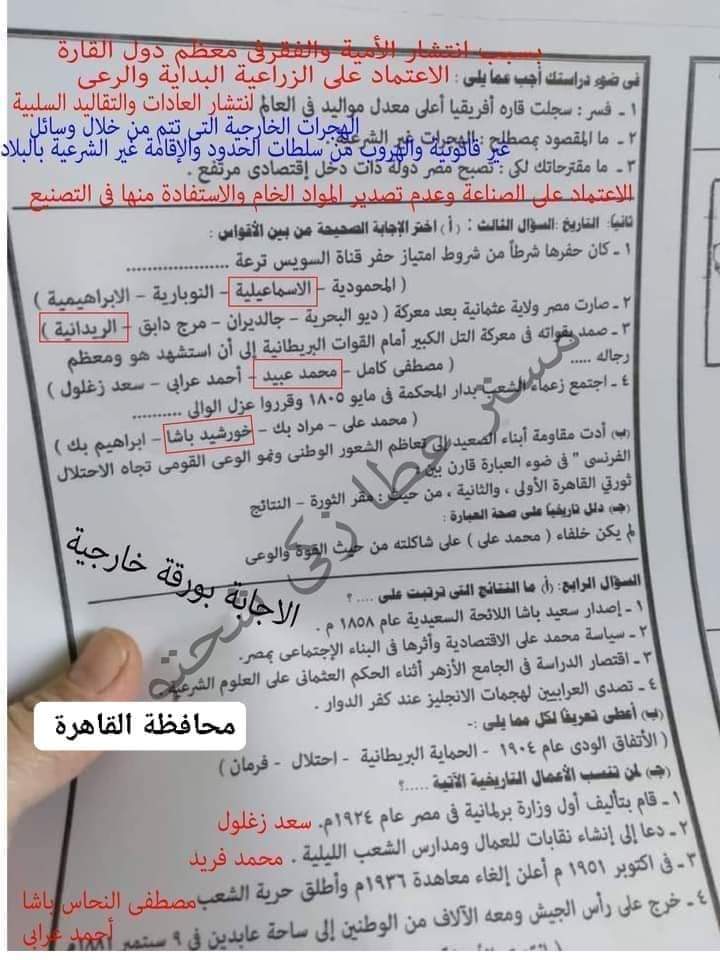 بسبب انتشار الأمية والفقر فى معظم دول القارة
الاعتماد على الزراعية البداية والرعى
فى ضوء دراستك أجب عما يلى :
١ - فسر : سجلت قاره أفريقيا أعلى معدل مواليد فى العالم
انتشار العادات والتقاليد السلبية
٢ - ما المقصود بمصطلح : الهجرات غير الشرعية
الهجرات الخارجية التى تتم من خلال وسائل
غير قانونية والهروب من سلطات الحدود والإقامة غير الشرعية بالبلاد
٣ - ما مقترحاتك لكى : تصبح مصر دولة ذات دخل إقتصادى مرتفع .
الاعتماد على الصناعة وعدم تصدير المواد الخام والاستفادة منها فى التصنيع
ثانيا: التاريخ: السؤال الثالث : (أ) اختر الإجابة الصحيحة من بين الأقواس :
١ - كان حفرها شرطاً من شروط امتياز حفر قناة السويس ترعة ....................
( المحمودية - الاسماعيلية - النوبارية - الابراهيمية )
٢ - صارت مصر ولاية عثمانية بعد معركة ( ديو البحرية - جالديران - مرج دابق - الريدانية )
٣ - صمد بقواته فى معركة التل الكبير أمام القوات البريطانية إلى أن استشهد هو ومعظم
رجاله ...... ( مصطفى كامل - محمد عبيد - أحمد عرابى - سعد زغلول )
٤ - اجتمع زعماء الشعب بدار المحكمة فى مايو ١٨٠٥ وقرروا عزل الوالى ..............
( محمد على - مراد بك - خورشيد باشا - ابراهيم بك )
(ب) أدت مقاومة أبناء الصعيد إلى تعاظم الشعور الوطنى ونمو الوعى القومى تجاه الاحتلال
الفرنسى " فى ضوء العبارة قارن بين :
ثورتي القاهرة الأولى ، والثانية ، من حيث : مقر الثورة - النتائج
(جـ) دلل تاريخياً على صحة العبارة :
لم يكن خلفاء ( محمد على ) على شاكلته من حيث القوة والوعى
الاجابة بورقة خارجية
السؤال الرابع: (أ) ما النتائج التى ترتبت على .... ؟
١ - إصدار سعيد باشا اللائحة السعيدية عام ١٨٥٨ م .
٢ - سياسة محمد على الاقتصادية وأثرها فى البناء الإجتماعى بمصر.
٣ - اقتصار الدراسة في الجامع الأزهر أثناء الحكم العثمانى على العلوم الشرعية .
٤ - تصدى العرابيين لهجمات الانجليز عند كفر الدوار .
محافظة القاهرة
(ب) أعطى تعريفاً لكل مما يلى :-
( الأتفاق الودى عام ١٩٠٤ - الحماية البريطانية - احتلال - فرمان )
(جـ) لمن تنسب الأعمال التاريخية الآتية .....؟
١ - قام بتأليف أول وزارة برلمانية فى مصر عام ١٩٢٤م. سعد زغلول
٢ - دعا إلى إنشاء نقابات للعمال ومدارس الشعب الليلية . محمد فريد
٣ - فى اكتوبر ١٩٥١ م أعلن إلغاء معاهدة ١٩٣٦م وأطلق حرية الشعب مصطفى النحاس باشا
٤ - خرج على رأس الجيش ومعه الآلاف من الوطنين إلى ساحة عابدين فى ٩ سبتمبر ١٨٨١م
أحمد عرابى
مستر عطا زكى شحته